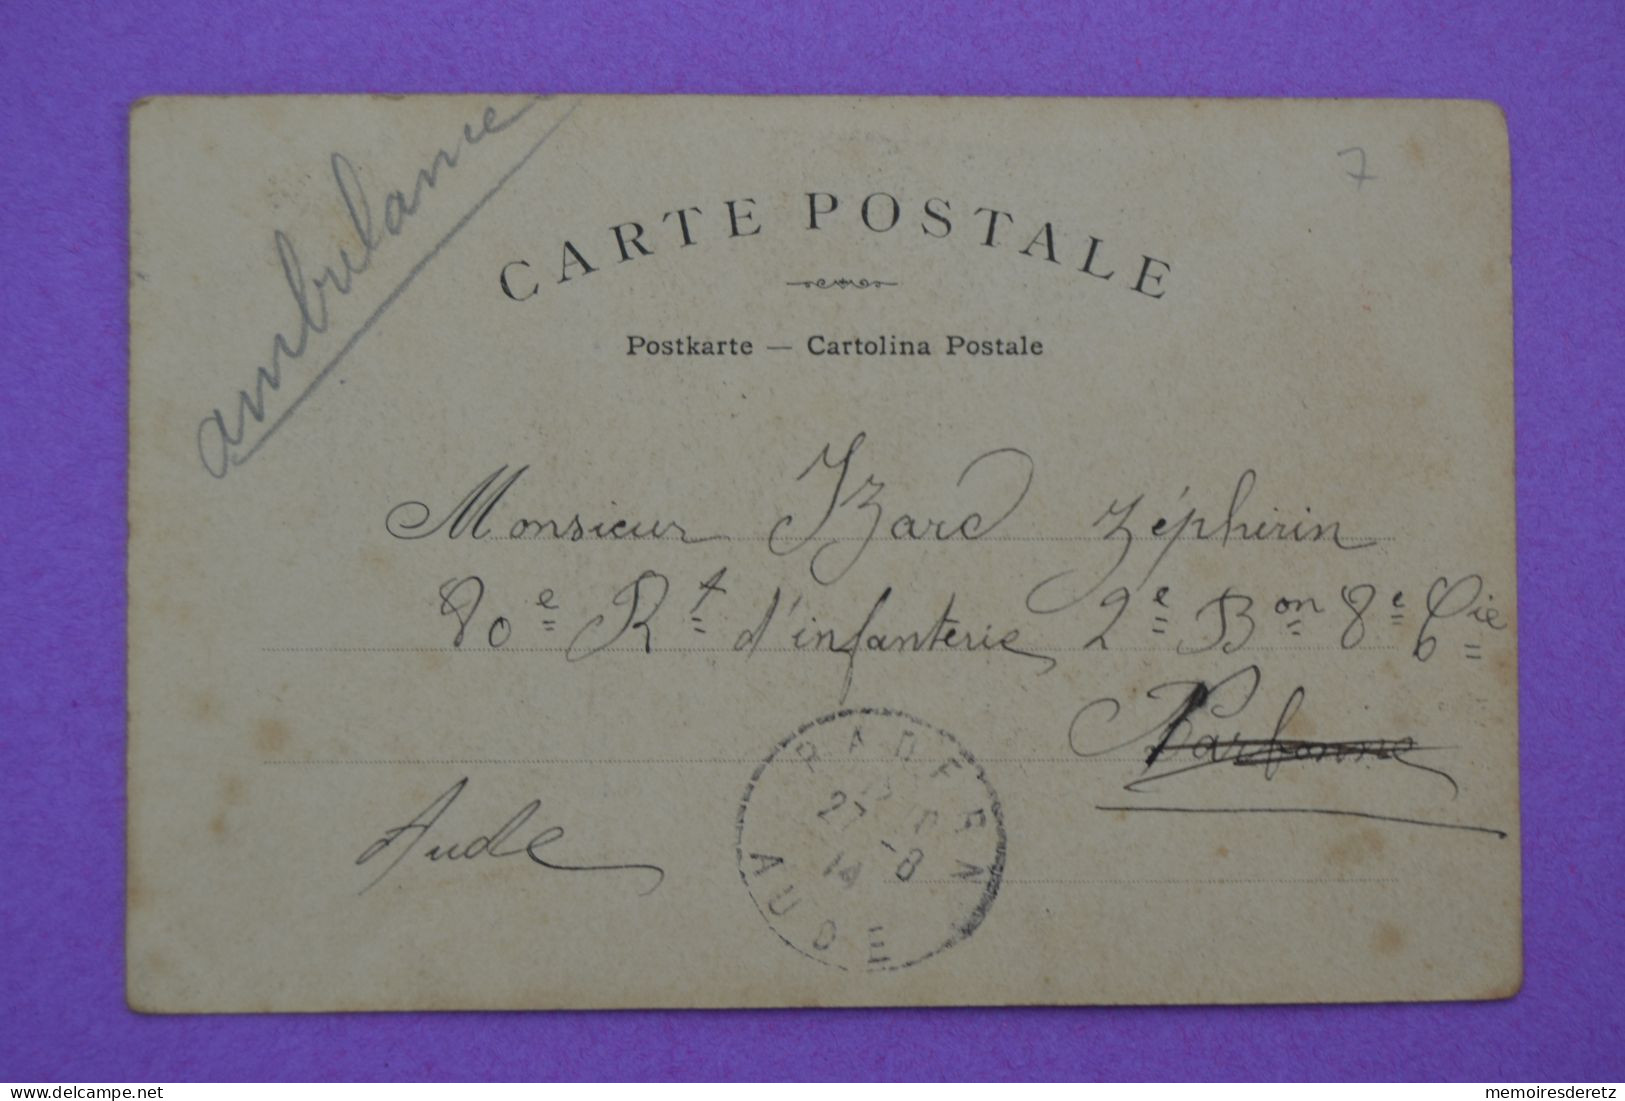 ambulance
7
CARTE POSTALE
Postkarte — Cartolina Postale
Monsieur Izard Zéphirin
80e Rt d'infanterie 2e Bon 8e Cie
Narbonne
Aude
PADERN
27-8
14
AUDE
delcampe.net
memoiresderetz